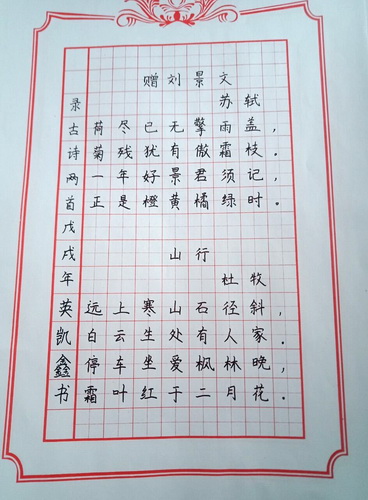 赠刘景文
苏轼
荷尽已无擎雨盖，
菊残犹有傲霜枝．
一年好景君须记，
正是橙黄橘绿时．
山行
杜牧
远上寒山石径斜，
白云生处有人家．
停车坐爱枫林晚，
霜叶红于二月花．
录古诗两首戊戌年英凯鑫书